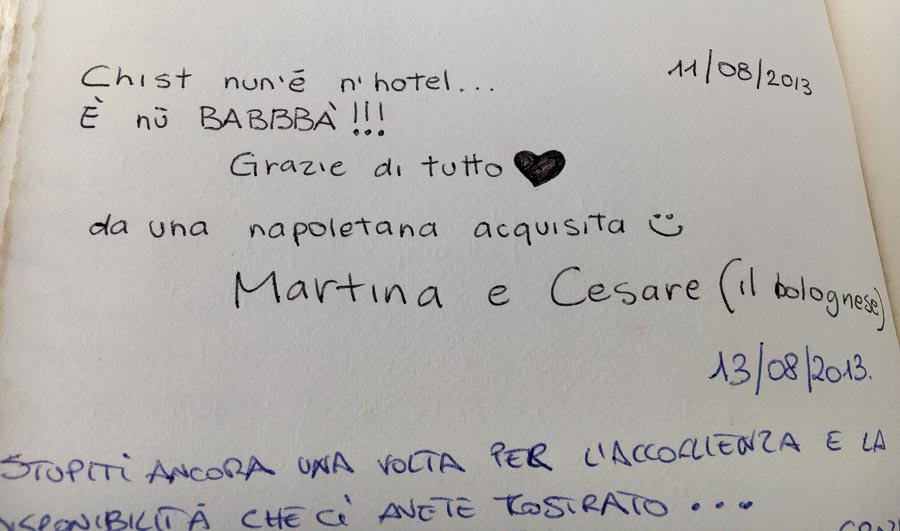 11/08/2013
Chist nun'é n'hotel...
È nū BABBBÀ!!!
Grazie di tutto ♥
da una napoletana acquisita ü
Martina e Cesare (il bolognese)
13/08/2013.
STUPITI ANCORA UNA VOLTA PER L'ACCOGLIENZA E LA
DISPONIBILITÀ CHE CI AVETE MOSTRATO ...